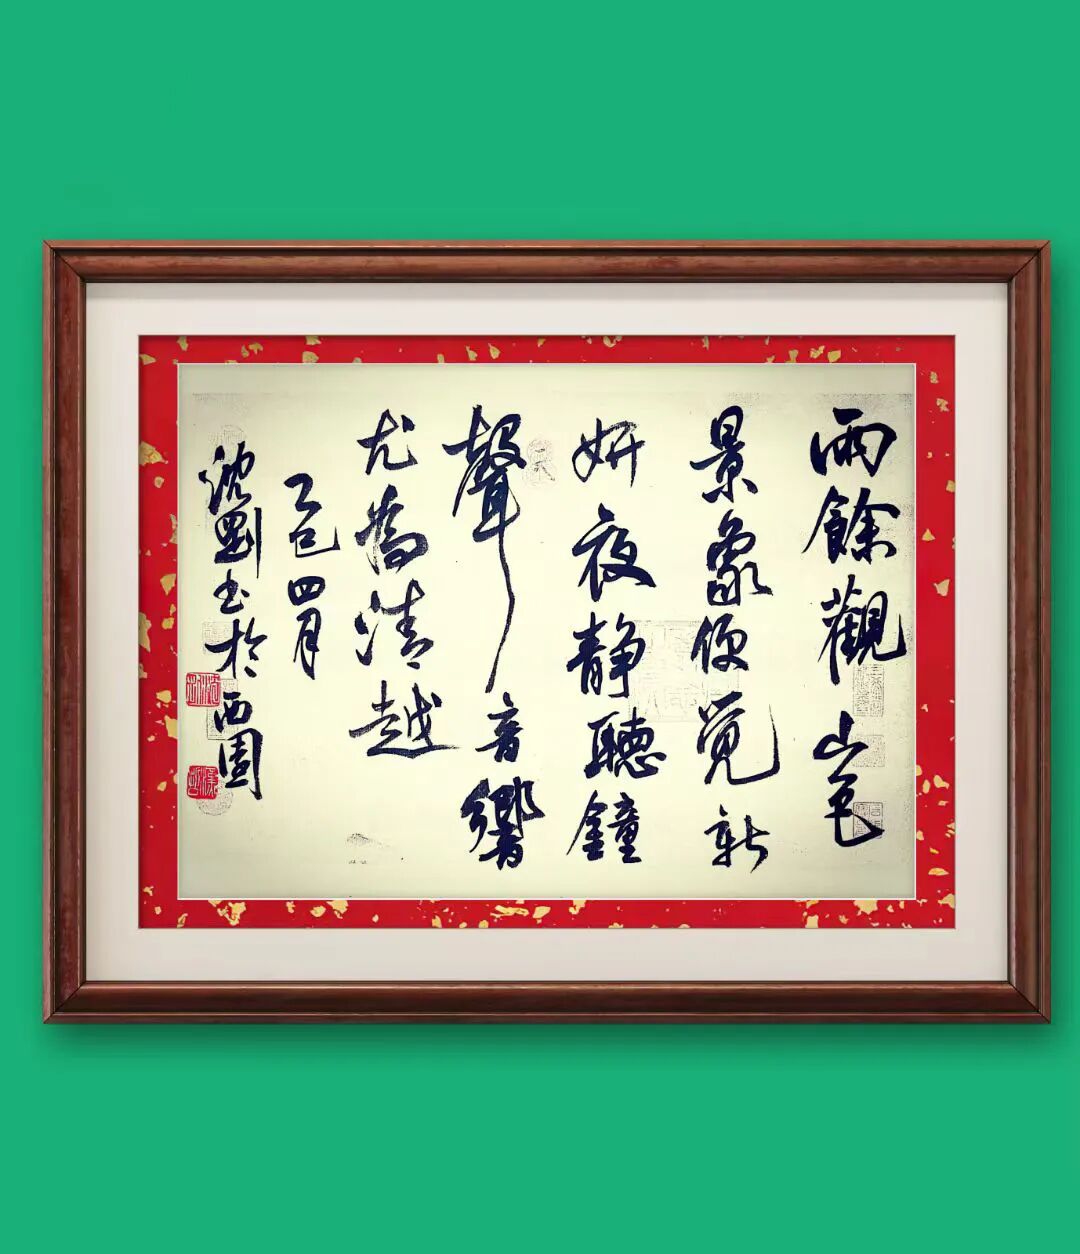 雨餘觀山色
景象便覺新
妍夜静聽鐘
聲音響
尤為清越
乙巳四月
沈劉书於西園